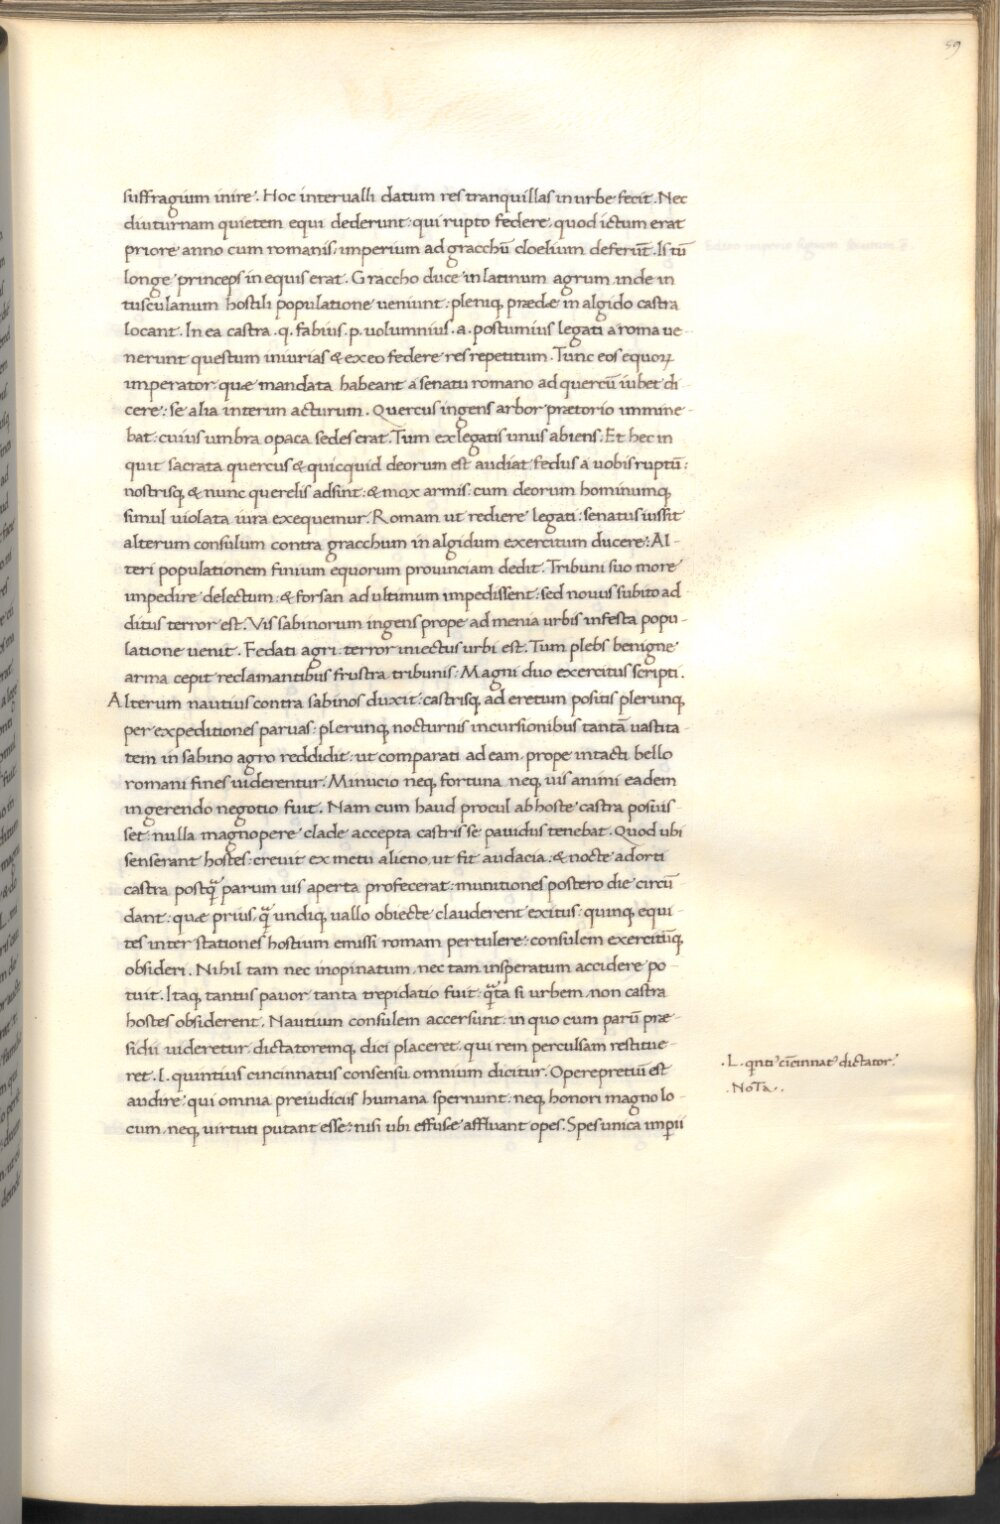 59
suffragium inire. Hoc intervalli datum res tranquillas in urbe fecit. Nec
diuturnam quietem equi dederunt: qui rupto federe, quod ictum erat
priore anno cum romanis, imperium ad gracchū cloelium deferūt. Is tū
longe princeps in equis erat. Graccho duce in latinum agrum inde in
tusculanum hostili populatione ueniunt: pleniq; prædæ in algido castra
locant. In ea castra .q. fabius .p. uolumnius .a. postumius legati a roma ue-
nerunt questum iniurias & ex eo federe res repetitum. Tunc eos equoꝝ
imperator quæ mandata habeant a senatu romano ad quercū iubet di-
cere: se alia interim acturum. Quercus ingens arbor prætorio immine-
bat: cuius umbra opaca sedes erat. Tum ex legatis unus abiens. Et hec in
quit sacrata quercus & quicquid deorum est audiat fedus a uobis ruptū:
nostrisq; & nunc querelis adsint: & mox armis: cum deorum hominumq;
simul uiolata iura exequemur. Romam ut rediere legati: senatus iussit
alterum consulum contra gracchum in algidum exercitum ducere: Al-
teri populationem finium equorum prouinciam dedit. Tribuni suo more
impedire delectum: & forsan ad ultimum impedissent: sed nouus subito ad
ditus terror est. Vis sabinorum ingens prope ad menia urbis infesta popu-
latione uenit. Fedati agri: terror iniectus urbi est. Tum plebs benigne
arma cepit reclamantibus frustra tribunis: Magni duo exercitus scripti.
Alterum nautius contra sabinos duxit: castrisq; ad eretum positis plerunq;
per expeditiones paruas: plerunq; nocturnis incursionibus tantā uastita-
tem in sabino agro reddidit: ut comparati ad eam, prope intacti bello
romani fines uiderentur. Minucio neq; fortuna neq; uis animi eadem
in gerendo negotio fuit. Nam cum haud procul ab hoste castra posuis
set: nulla magnopere clade accepta castris se pauidus tenebat. Quod ubi
senserant hostes: creuit ex metu alieno, ut fit audacia: & nocte adorti
castra postq̄ parum uis aperta profecerat: munitiones postero die circū-
dant: quæ prius, q̄ undiq; uallo obiecte clauderent exitus: quinq; equi-
tes inter stationes hostium emissi romam pertulere: consulem exercitūq;
obsideri. Nihil tam nec inopinatum, nec tam insperatum accidere po-
tuit. Itaq; tantus pauor tanta trepidatio fuit: q̄ta si urbem, non castra
hostes obsiderent. Nautium consulem accersunt: in quo cum parū præ-
sidii uideretur dictatoremq; dici placeret qui rem perculsam restitue-
ret. L. quintius cincinnatus consensu omnium dicitur. Operepretiū est
audire: qui omnia preiudiciis humana spernunt: neq; honori magno lo-
cum, neq; uirtuti putant esse: nisi ubi effusæ affluant opes. Spes unica imꝑii
.L. qnti' cīcinnat' dictator.
NoTa.